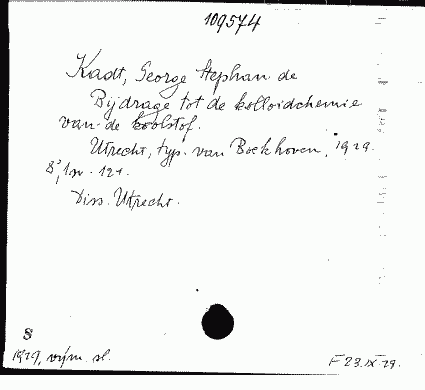 109574
Kadt, George Stephan de
Bijdrage tot de kolloidchemie
van de koolstof.
Utrecht, typ. van Boekhoven, 1929.
8°, 121.
Diss. Utrecht.
S
1929, vijm. sl.
F 23.IX.29.